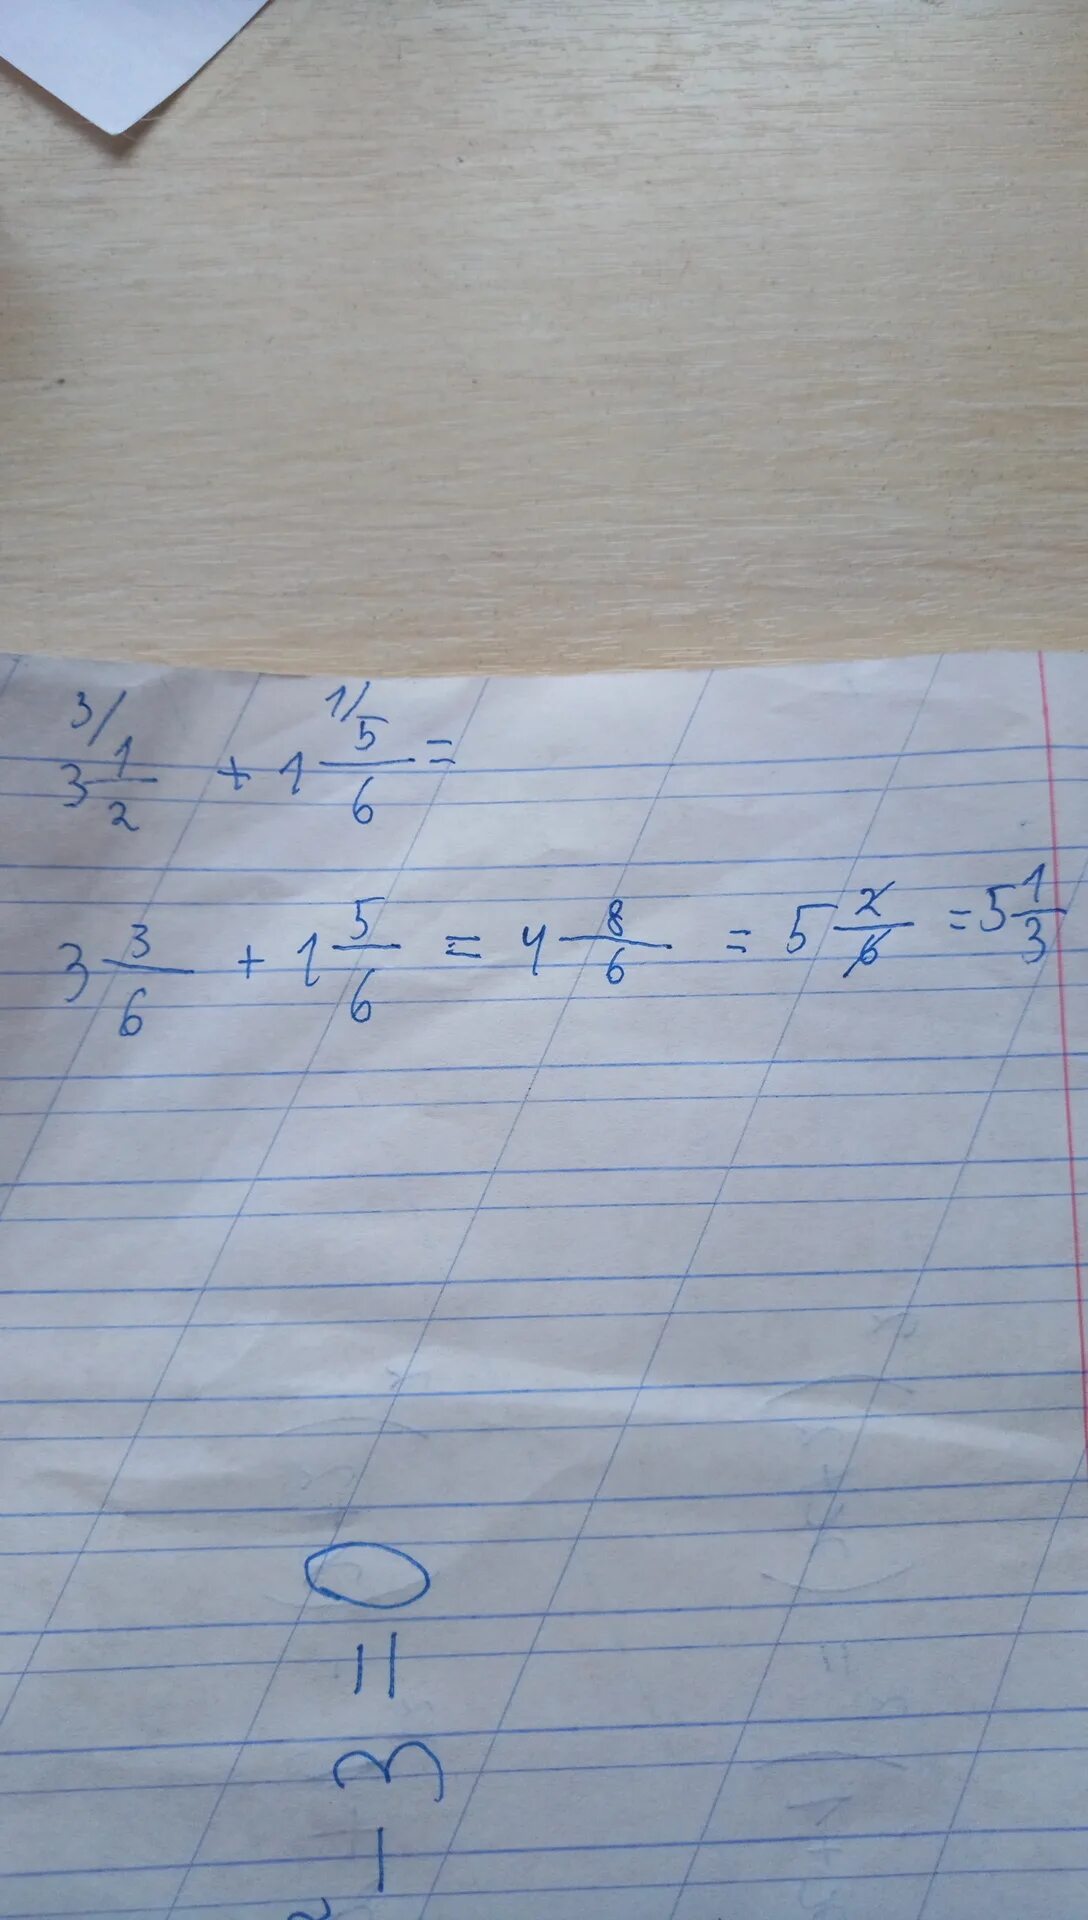 3/ 1/
3 1/2 + 1 5/6 =
3 3/6 + 1 5/6 = 4 8/6 = 5 2/6 = 5 1/3
- 3 = 0